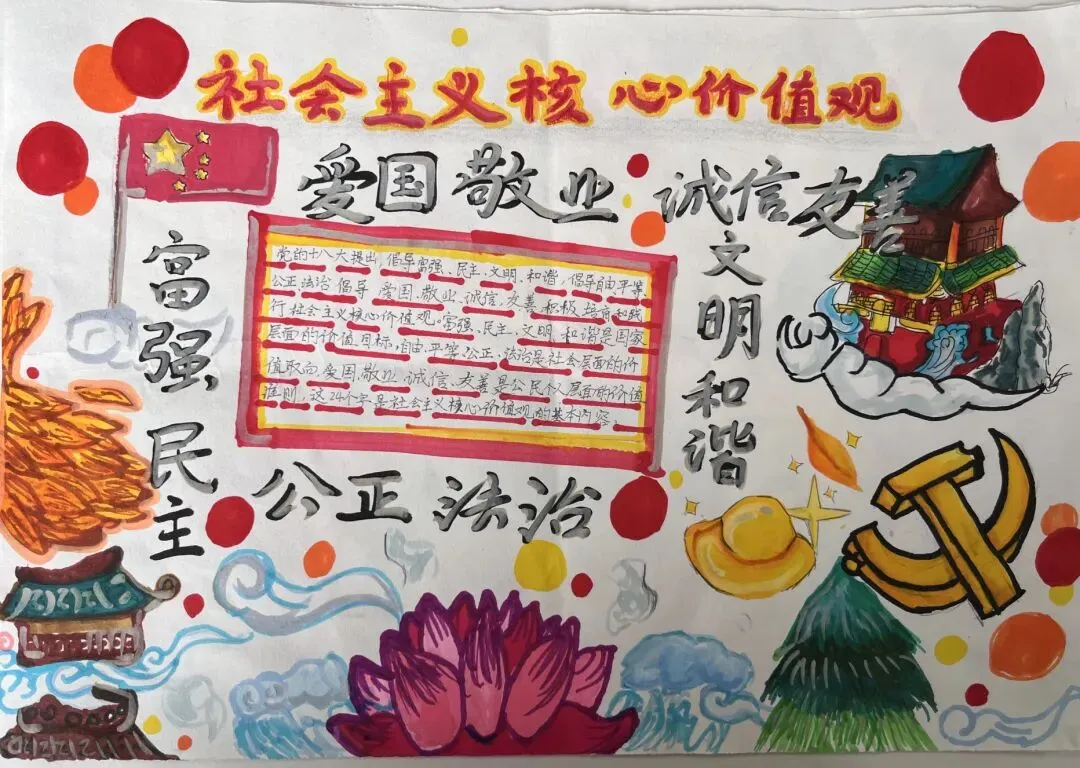 社会主义核心价值观
爱国 敬业 诚信友善
富强 民主
党的十八大提出,倡导富强、民主、文明、和谐,倡导自由、平等、
公正、法治,倡导 爱国、敬业、诚信、友善,积极 培育和践
行 社会主义核心价值观。富强、民主、文明、和谐是国家
层面的价值目标,自由、平等、公正、法治是社会层面的价
值取向,爱国、敬业、诚信、友善是公民个人层面的价值
准则,这24个字是社会主义核心价值观的基本内容。
文明 和谐
公正 法治